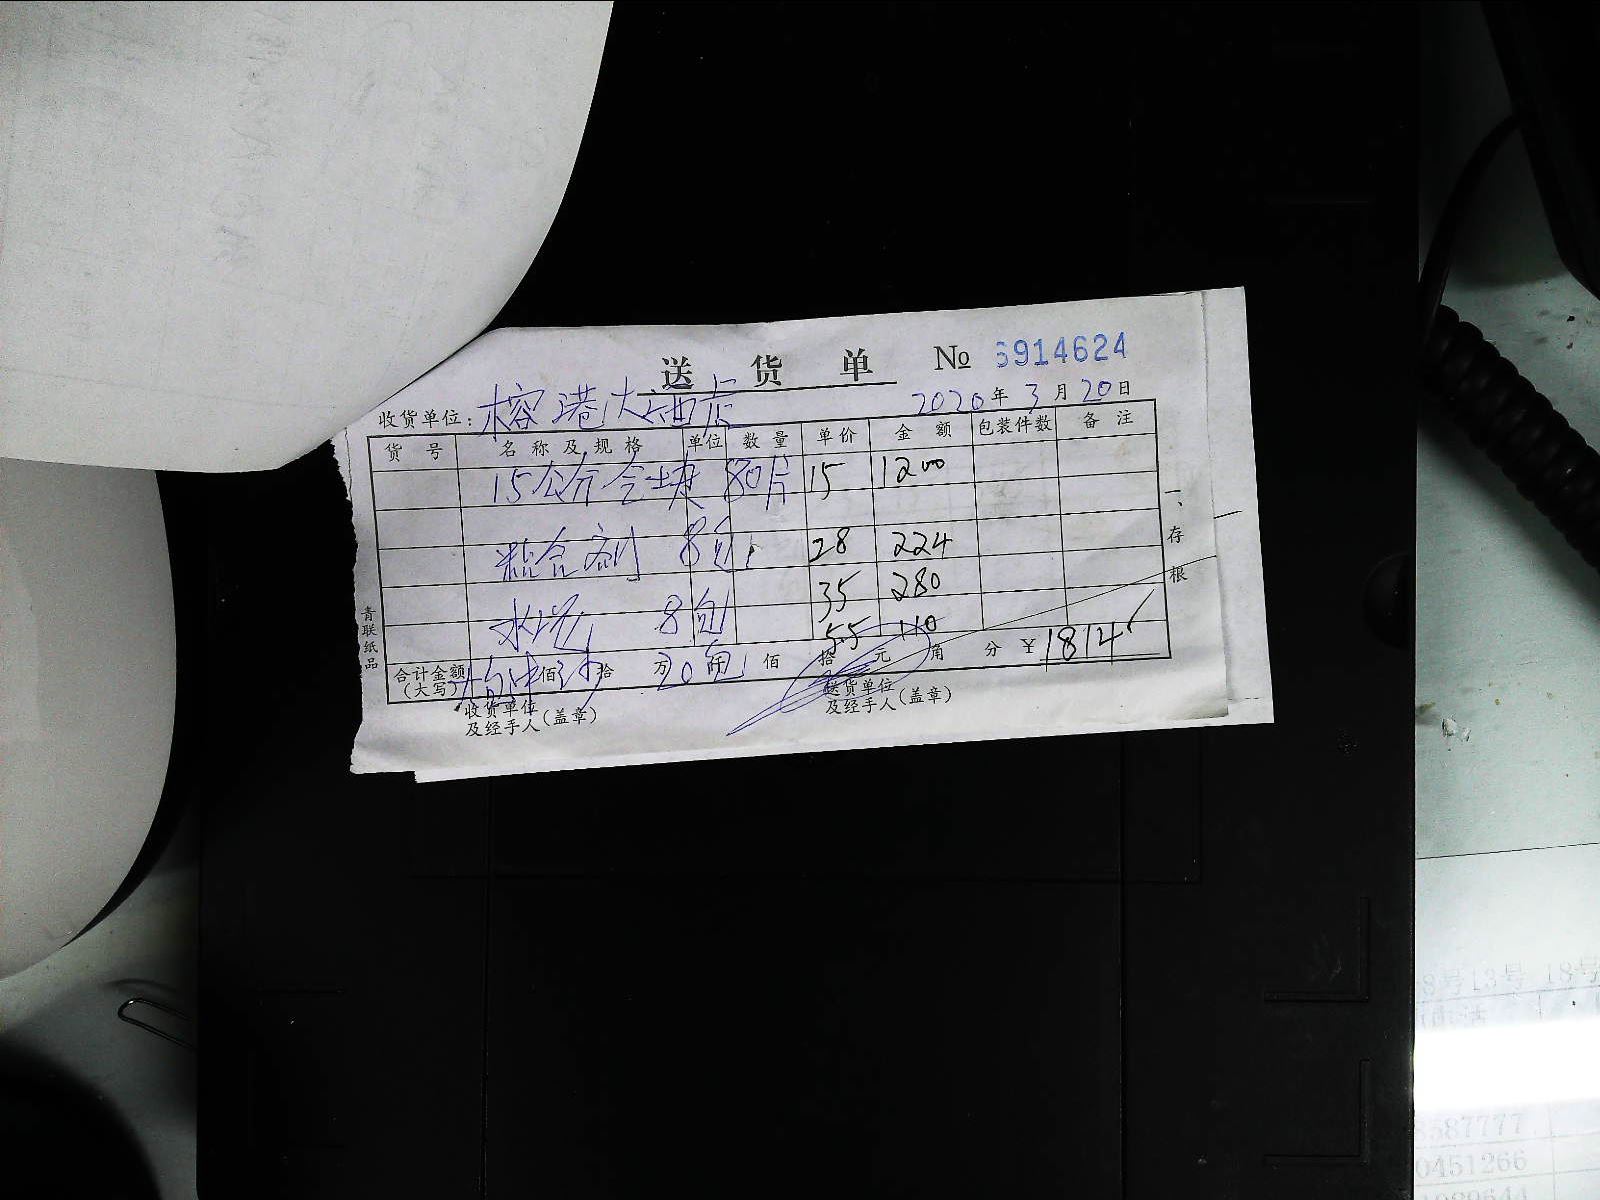 送货单 № 6914624
收货单位：榕港大酒店 2020年3月20日
货号 名称及规格 单位 数量 单价 金额 包装件数 备注
15公分 80片 15 1200
粘合剂 8包 28 224
水泥 8包 35 280
20包 5.5 110
合计金额（大写） 佰 拾 万 仟 佰 拾 元 角 分 ￥1814
收货单位及经手人（盖章） 送货单位及经手人（盖章）
一、存根
青联纸品
8号13号 18号
8587777
0451266